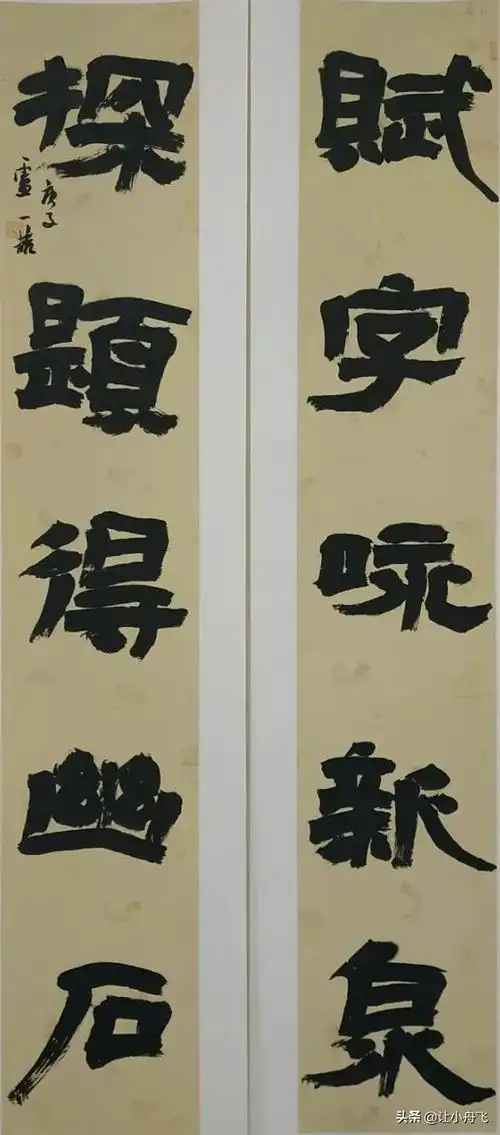 賦字咏新泉
探題得幽石
庚子
盧一龍
头条 @让小舟飞